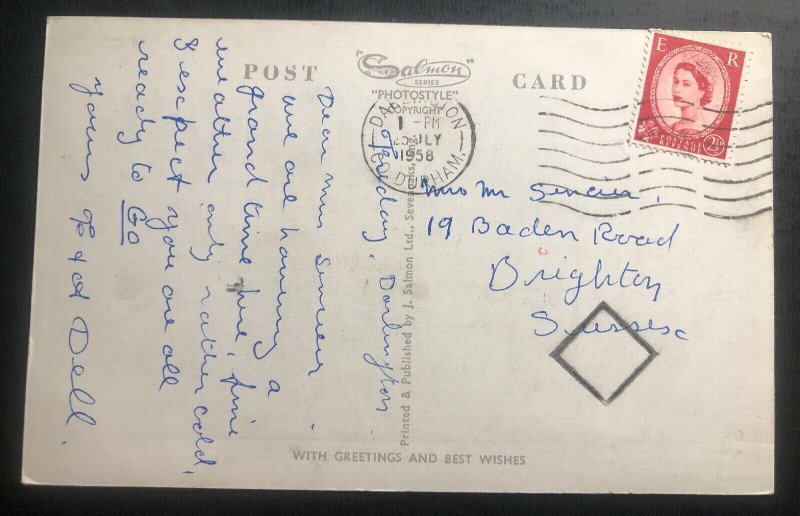 POST CARD
"Salmon"
SERIES
"PHOTOSTYLE"
COPYRIGHT
DARLINGTON
1 - PM
JLY
1958
CO. DURHAM.
E R
POSTAGE
REVENUE
2½
Friday. Darlington.
Dear Mrs
we are having a
grand time here, fine
weather only rather cold,
& expect you are all
ready to Go
yours F & A Dell.
Mrs Mr
19 Baden Road
Brighton
Sussex
Printed & Published by J. Salmon Ltd., Sevenoaks,
WITH GREETINGS AND BEST WISHES